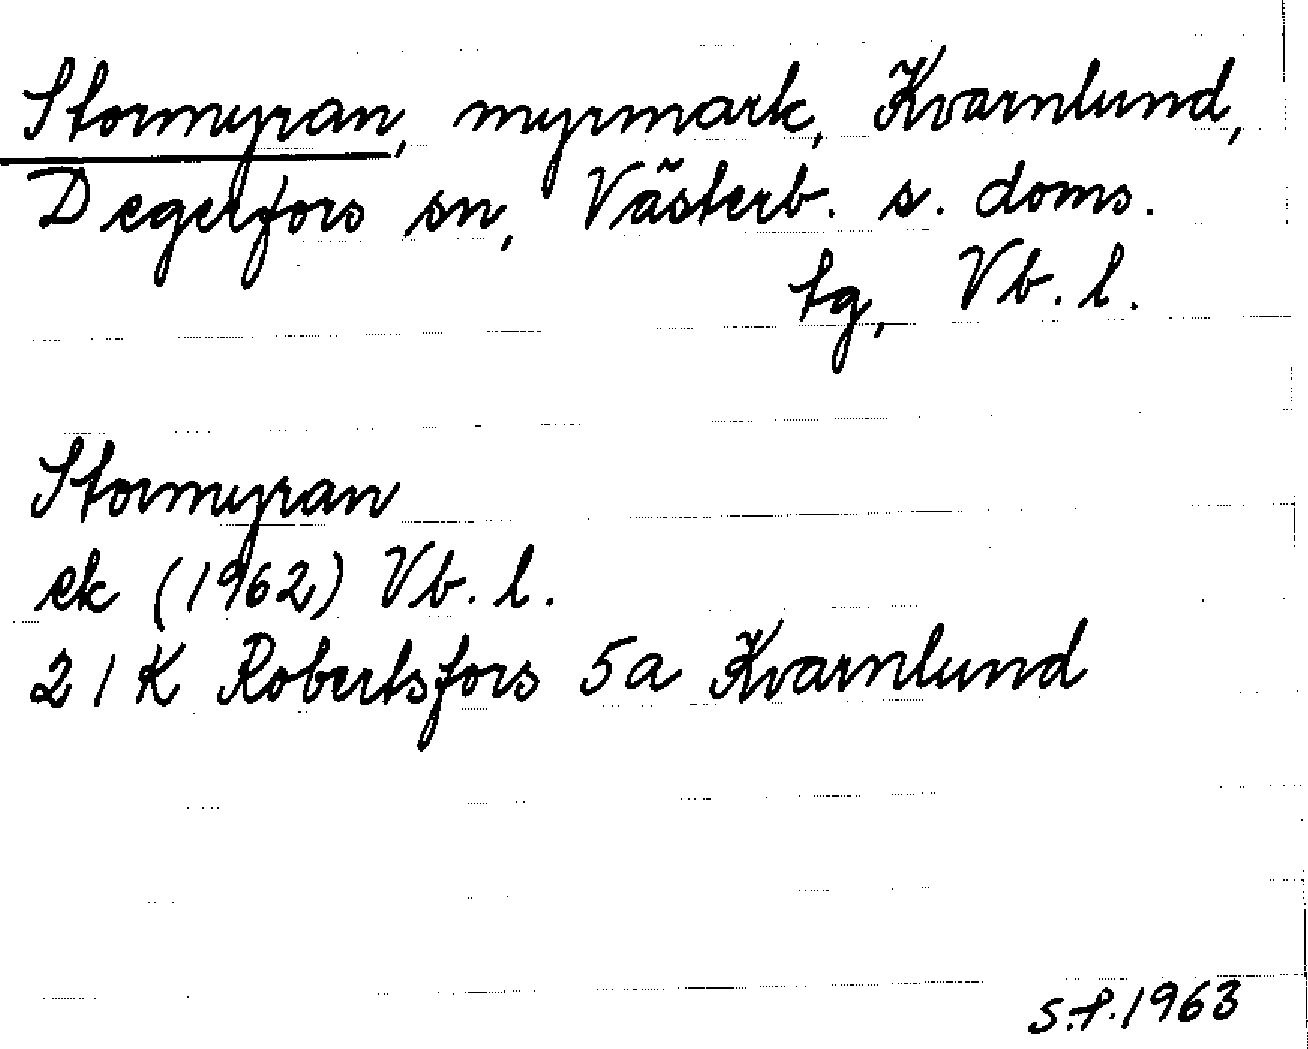 Stormyran, myrmark, Kvarnlund,
Degerfors sn, Västerb. s. doms.
tg, Vb. l.
Stormyran
ek (1962) Vb. l.
21K Robertsfors 5a Kvarnlund
S.P. 1963